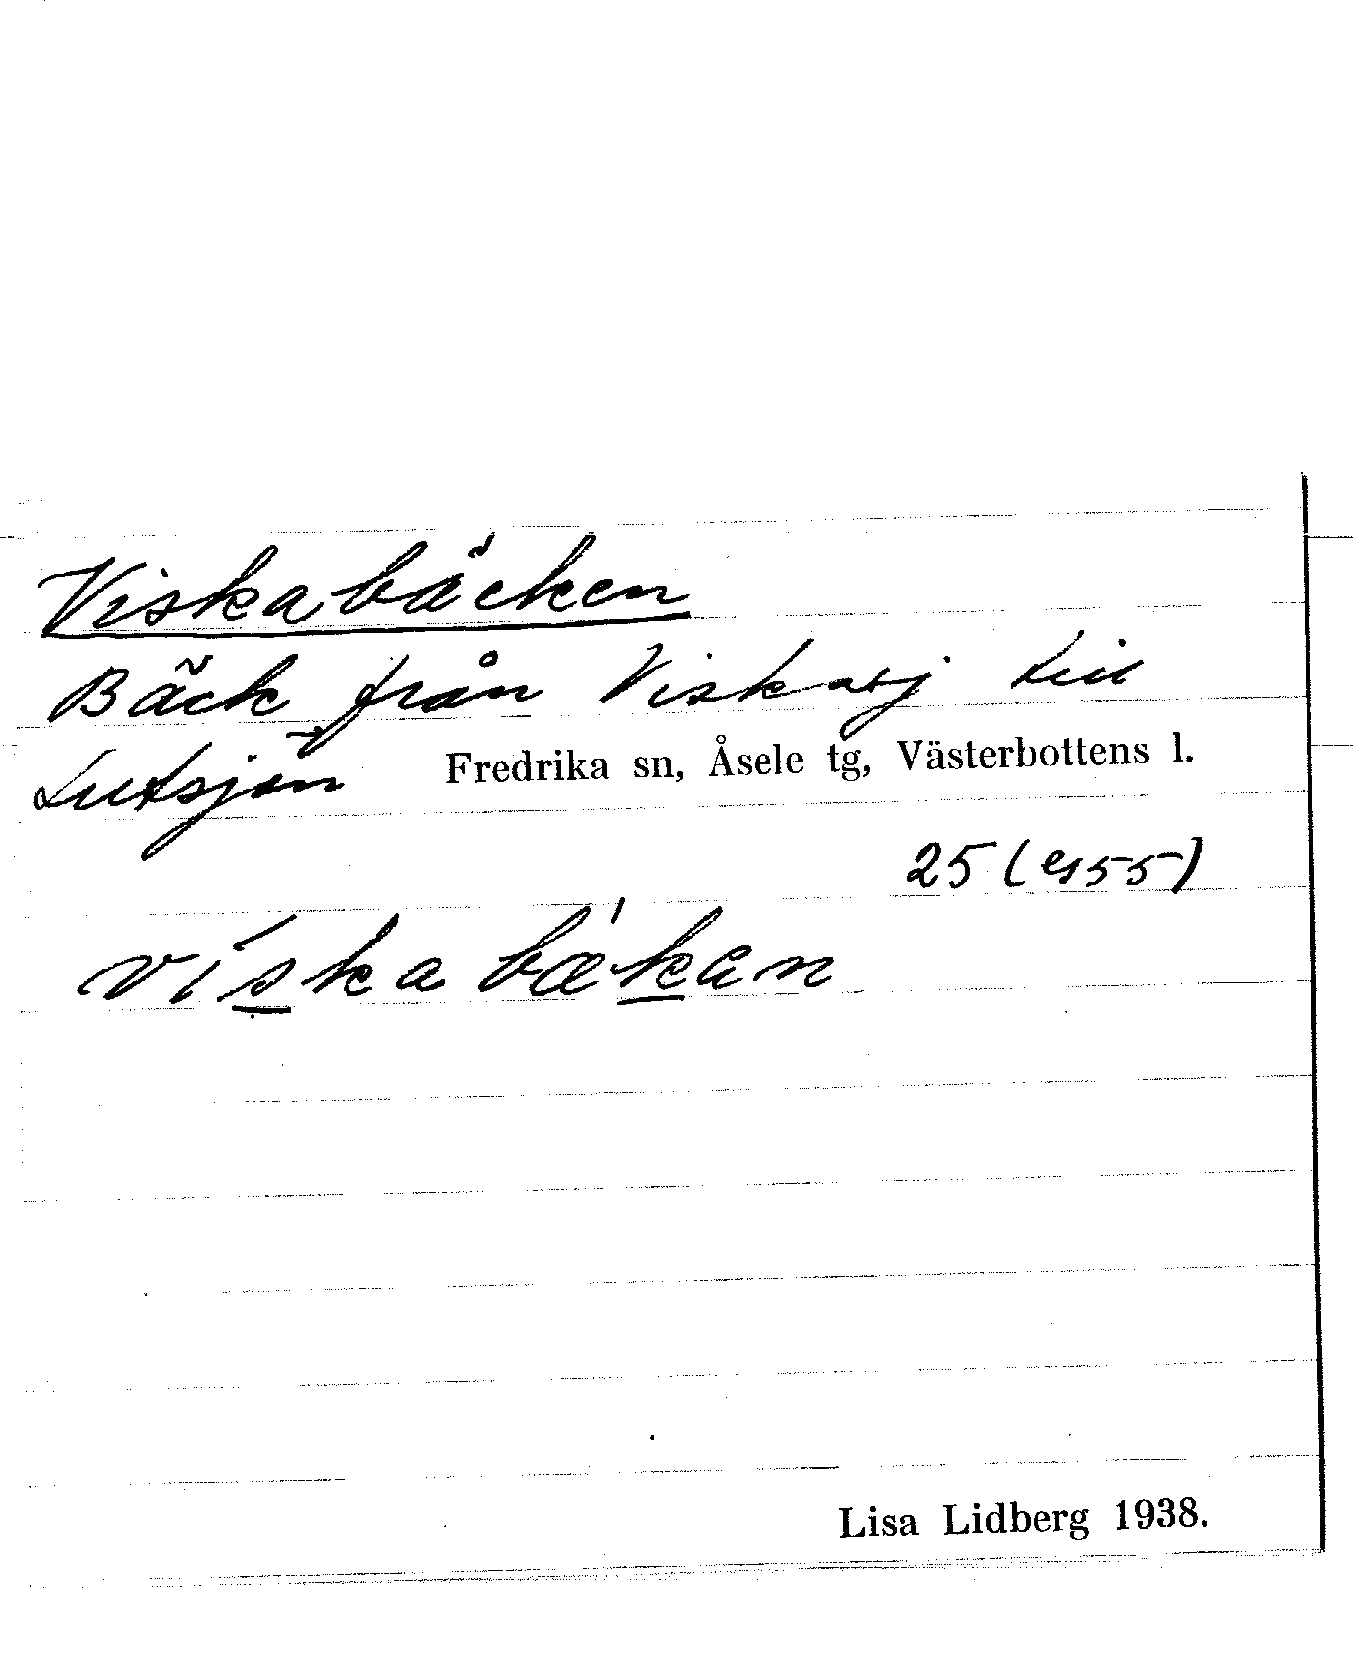 Viskabäcken
Bäck från Viskasj till
Lutsjön Fredrika sn, Åsele tg, Västerbottens l.
25 (
víska bǽkan
Lisa Lidberg 1938.